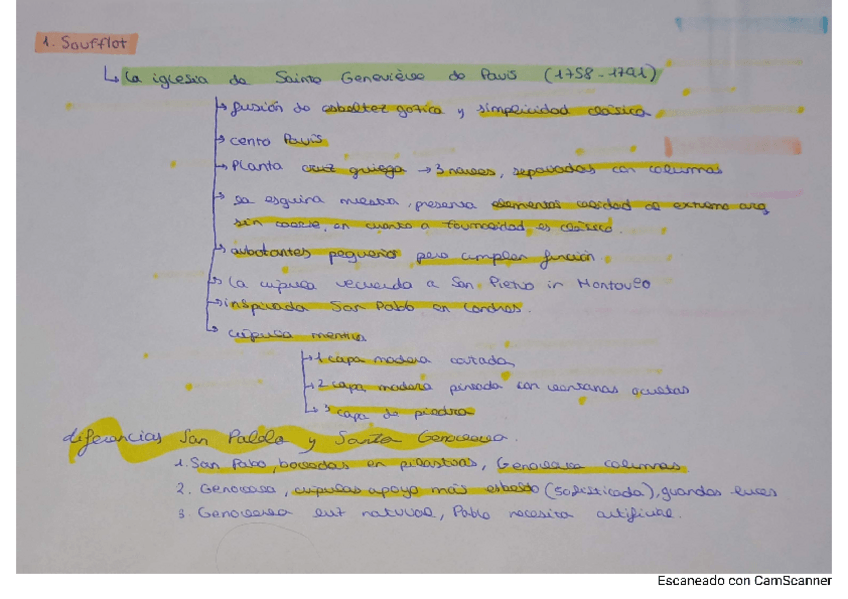 1. Soufflot
La iglesia de Sainte Geneviève de París (1758-1791)
fusión de esbeltez gótica y simplicidad clásica
centro París
Planta cruz griega → 3 naves, separadas con columnas
se esquina muestra, presenta elementos calidad de extremo arq
sin coerse, en cuanto a formosidad es clásico.
arbotantes pequeños pero cumplen función
La cúpula recuerda a San Pietro in Montoveo
inspirada San Pablo en Londres.
cúpula mentira
1 capa madera
2 capa madera pintada con ventanas ocultas
3 capa de piedra
diferencias San Pablo y Santa Genoveva.
1. San Pabo, bovedas en pilastras, Genoveva columnas
2. Genoveva, cúpulas apoyo más esbelto (sofisticada), grandes luces
3 Genoveva luz natural, Pablo necesita artificial.
Escaneado con CamScanner